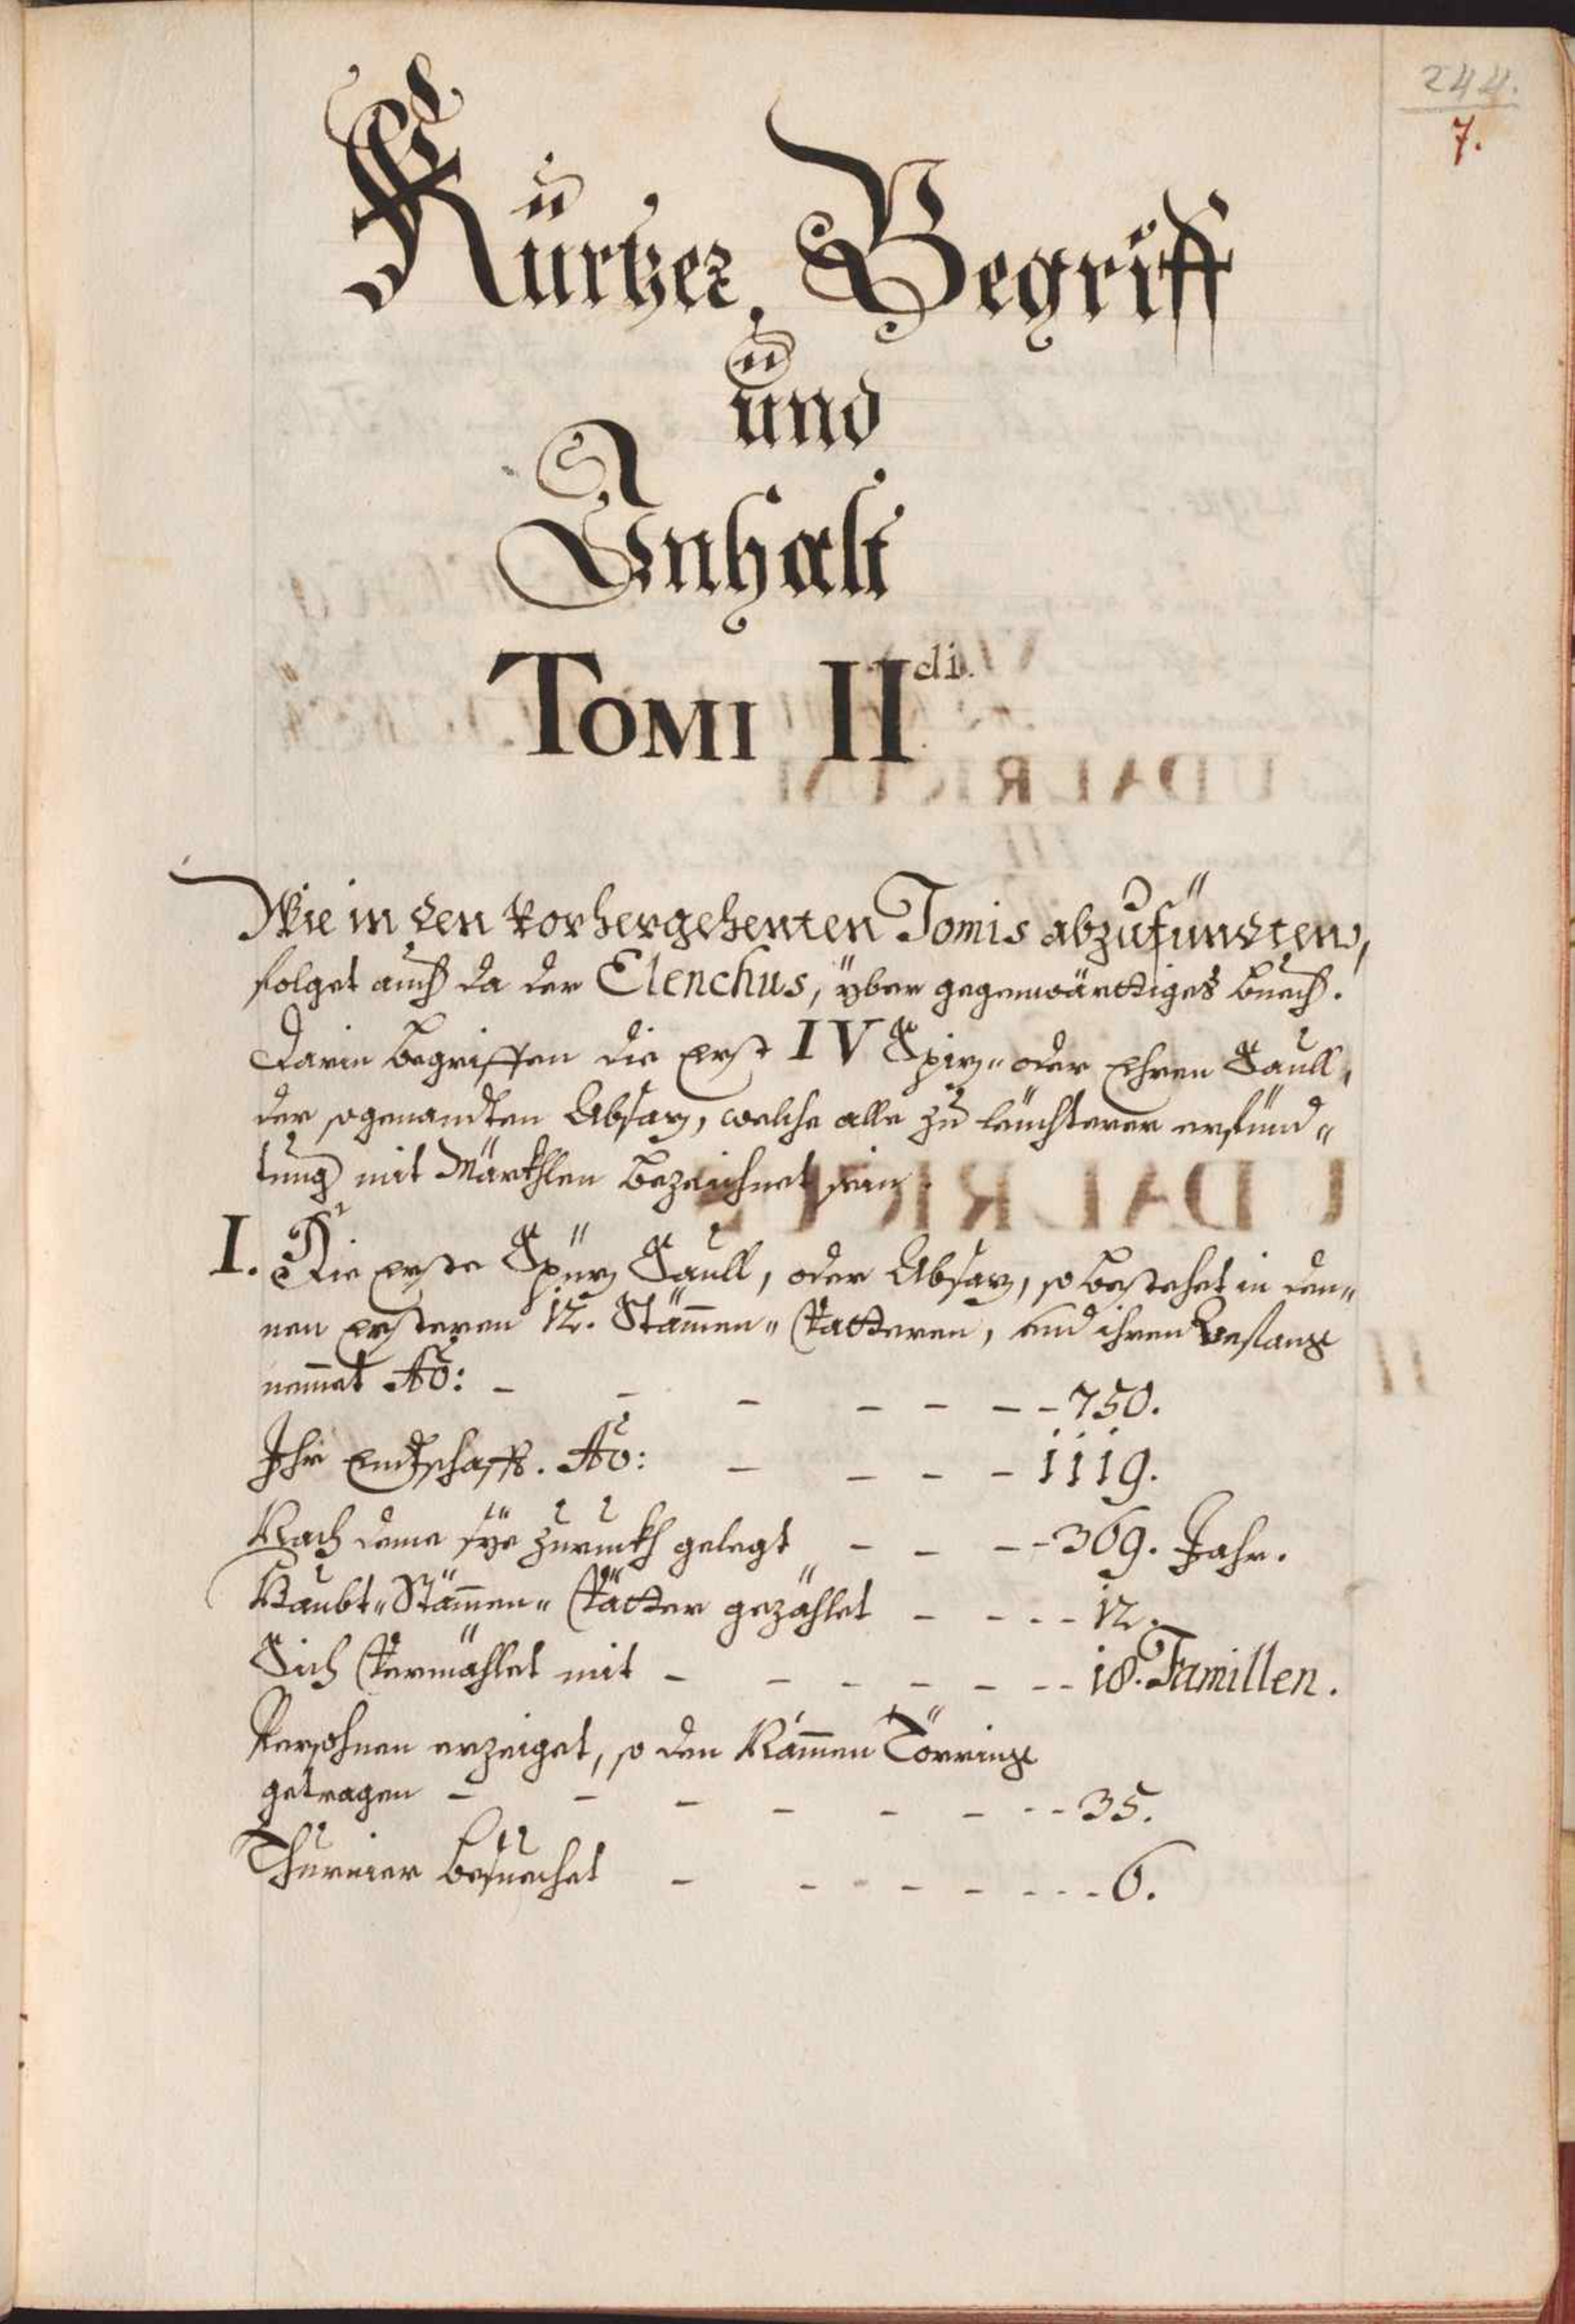 244.
7.
Kürtzer Begriff
und
Inhalt
TOMI II di.
Wie in den vorhergehenten Tomis abzufündten,
folget auch da der Elenchus, yber gegenwärttiges buech.
Darin begriffen die erst IV Spiz- oder Ehren Saull,
der sogenandten Absaz, welche alle zu leuchterer erfünd-
tung mit Märkhlen bezeichnet sein.
I. Die erste Spüz Saull, oder Absaz, so bestehet in den-
nen ersteren 12. Stam̄en- Vatteren, und ihren Anfang
nem̄et Aō: - - - - - - - 750.
Ihr Endtschafft. Aō: - - - - 1119.
Nach deme sye zuruckh gelegt - - - - 369. Jahr.
Haubt- Stam̄en- Vätter gezählet - - - - 12.
Sich Vermählet mit - - - - - - - 18. Famillen.
Persohnen erzeiget, so den Nam̄en Törring
getragen - - - - - - - - 35.
Thurnier besuechet - - - - - - - - 6.